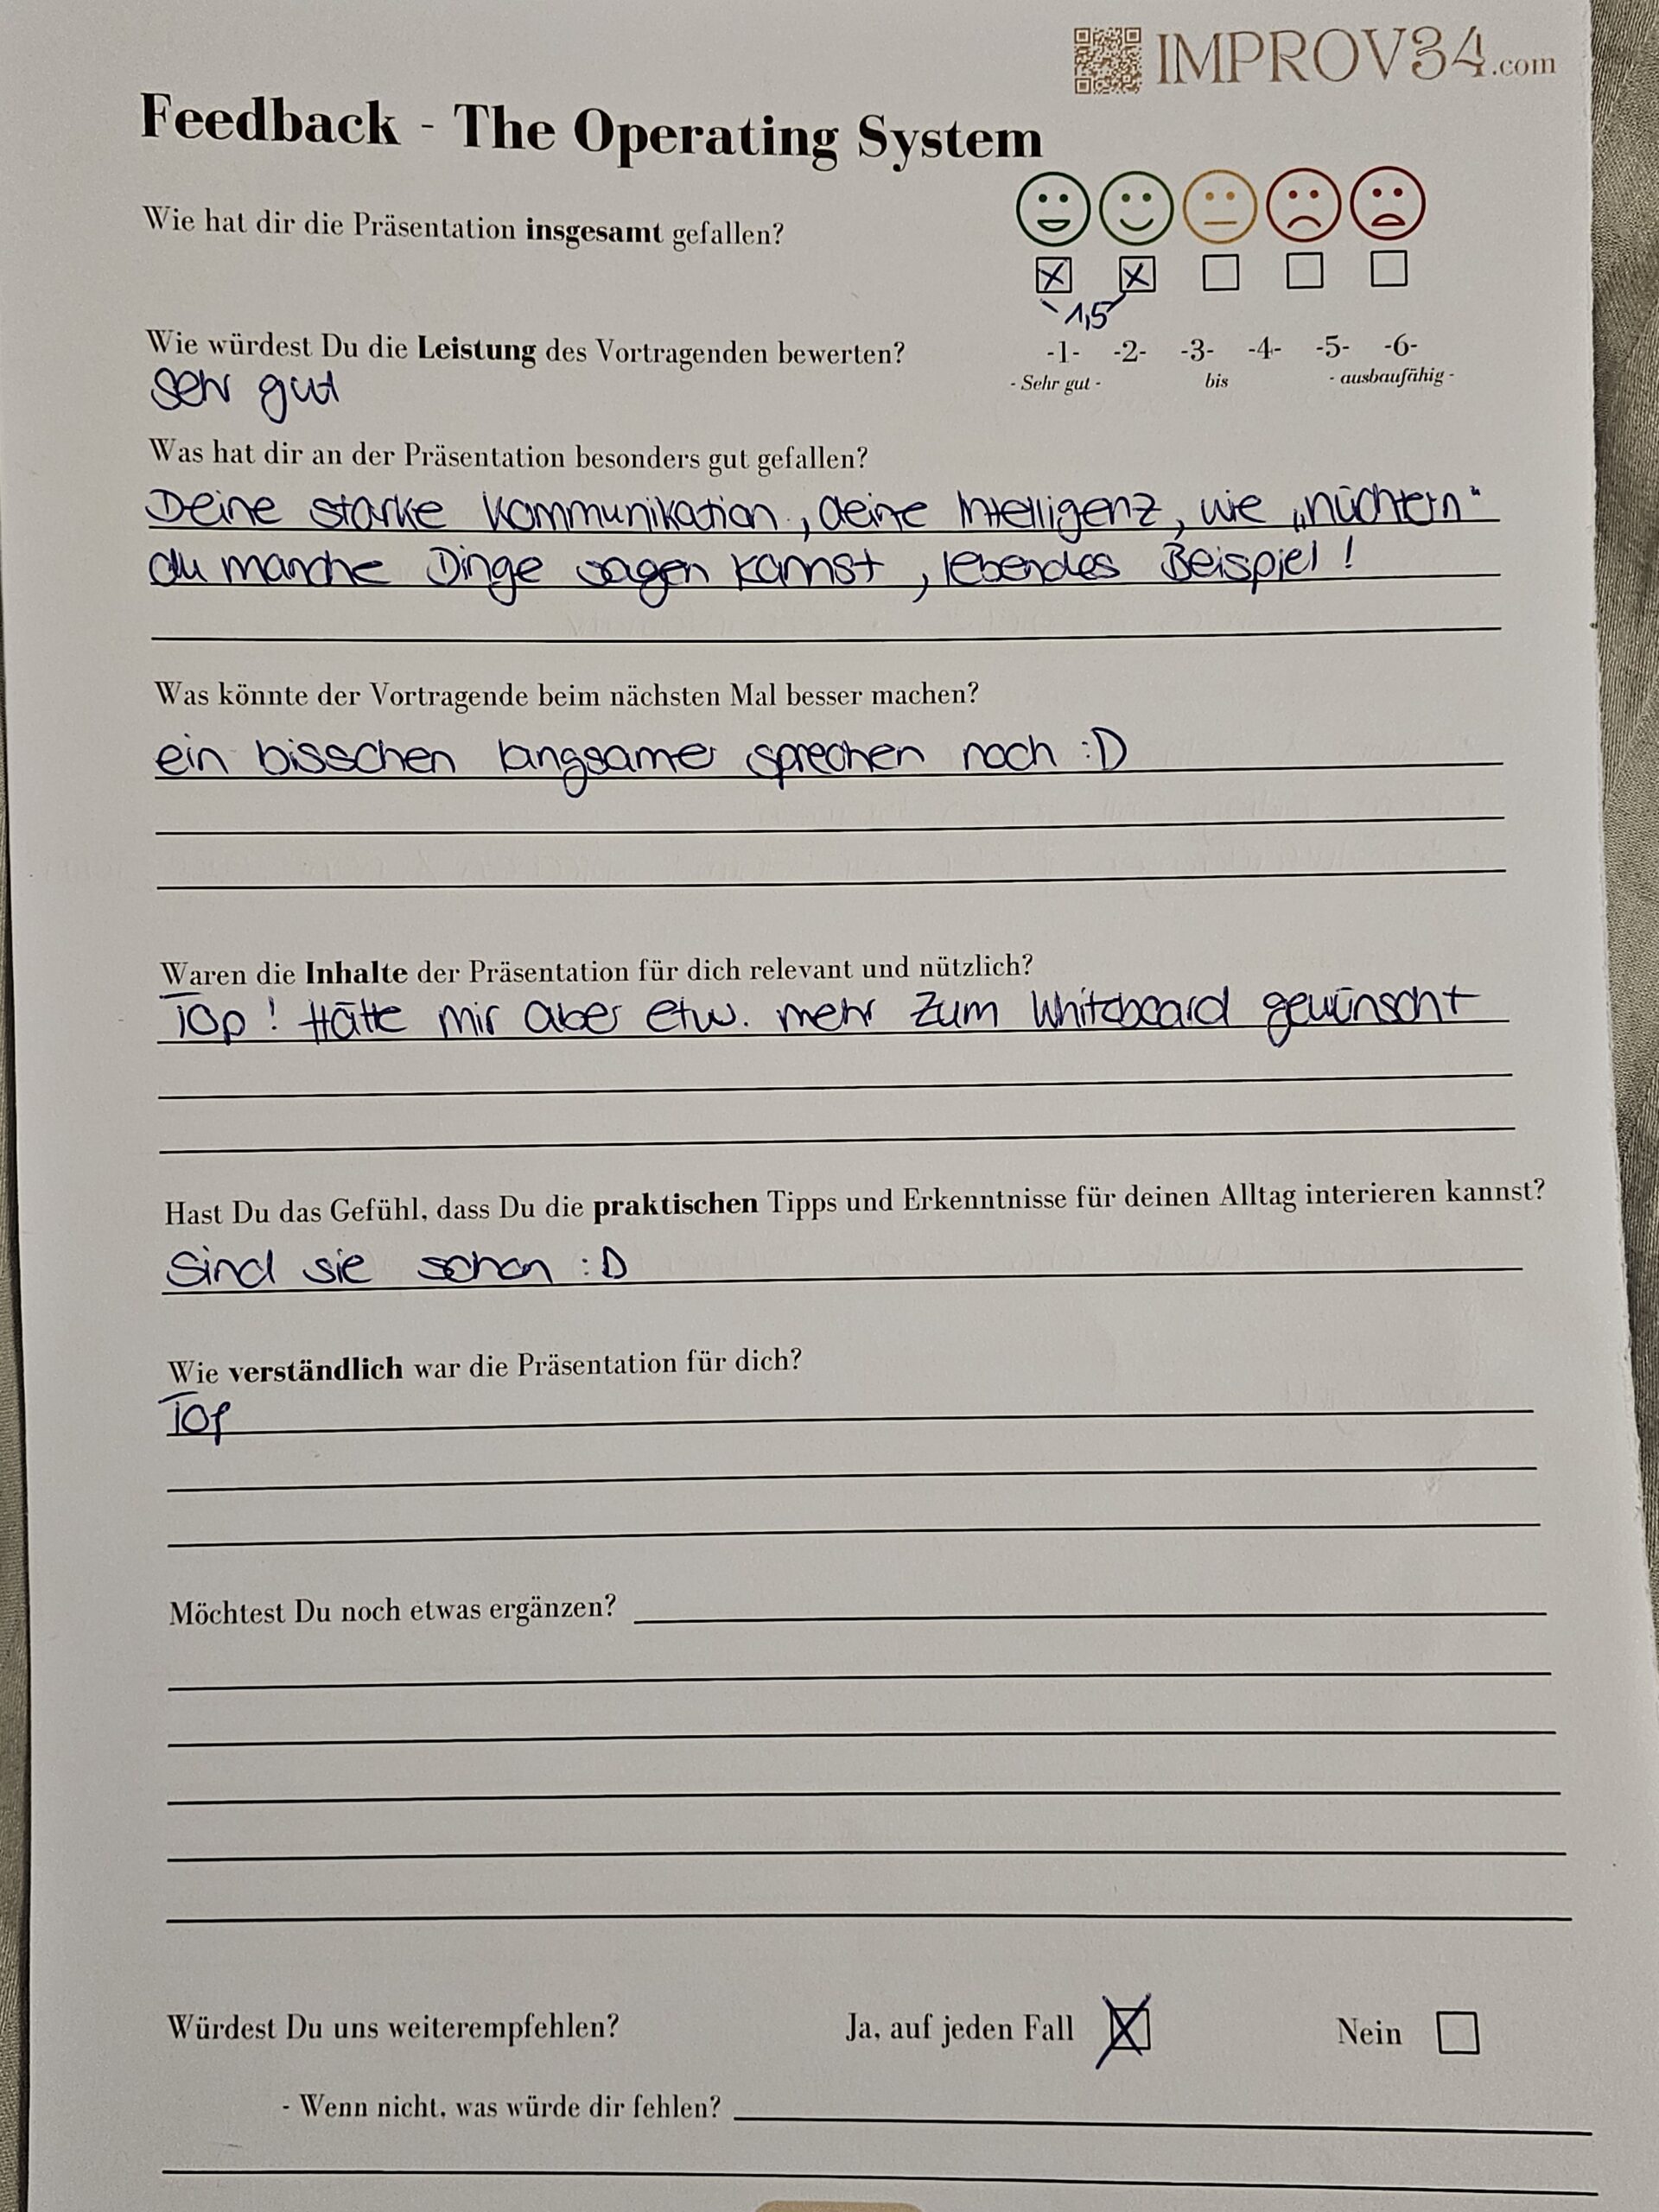 IMPROV34.com
Feedback - The Operating System
Wie hat dir die Präsentation insgesamt gefallen?
1,5
Wie würdest Du die Leistung des Vortragenden bewerten?
-1- -2- -3- -4- -5- -6-
- Sehr gut - bis - ausbaufähig -
Sehr gut
Was hat dir an der Präsentation besonders gut gefallen?
Deine starke Kommunikation, deine Intelligenz, wie „nüchtern"
du manche Dinge sagen kannst, lebendes Beispiel!
Was könnte der Vortragende beim nächsten Mal besser machen?
ein bisschen langsamer sprechen noch :D
Waren die Inhalte der Präsentation für dich relevant und nützlich?
Top! Hätte mir aber etw. mehr zum Whiteboard gewünscht
Hast Du das Gefühl, dass Du die praktischen Tipps und Erkenntnisse für deinen Alltag interieren kannst?
Sind sie schon :D
Wie verständlich war die Präsentation für dich?
Top
Möchtest Du noch etwas ergänzen?
Würdest Du uns weiterempfehlen? Ja, auf jeden Fall Nein
- Wenn nicht, was würde dir fehlen?